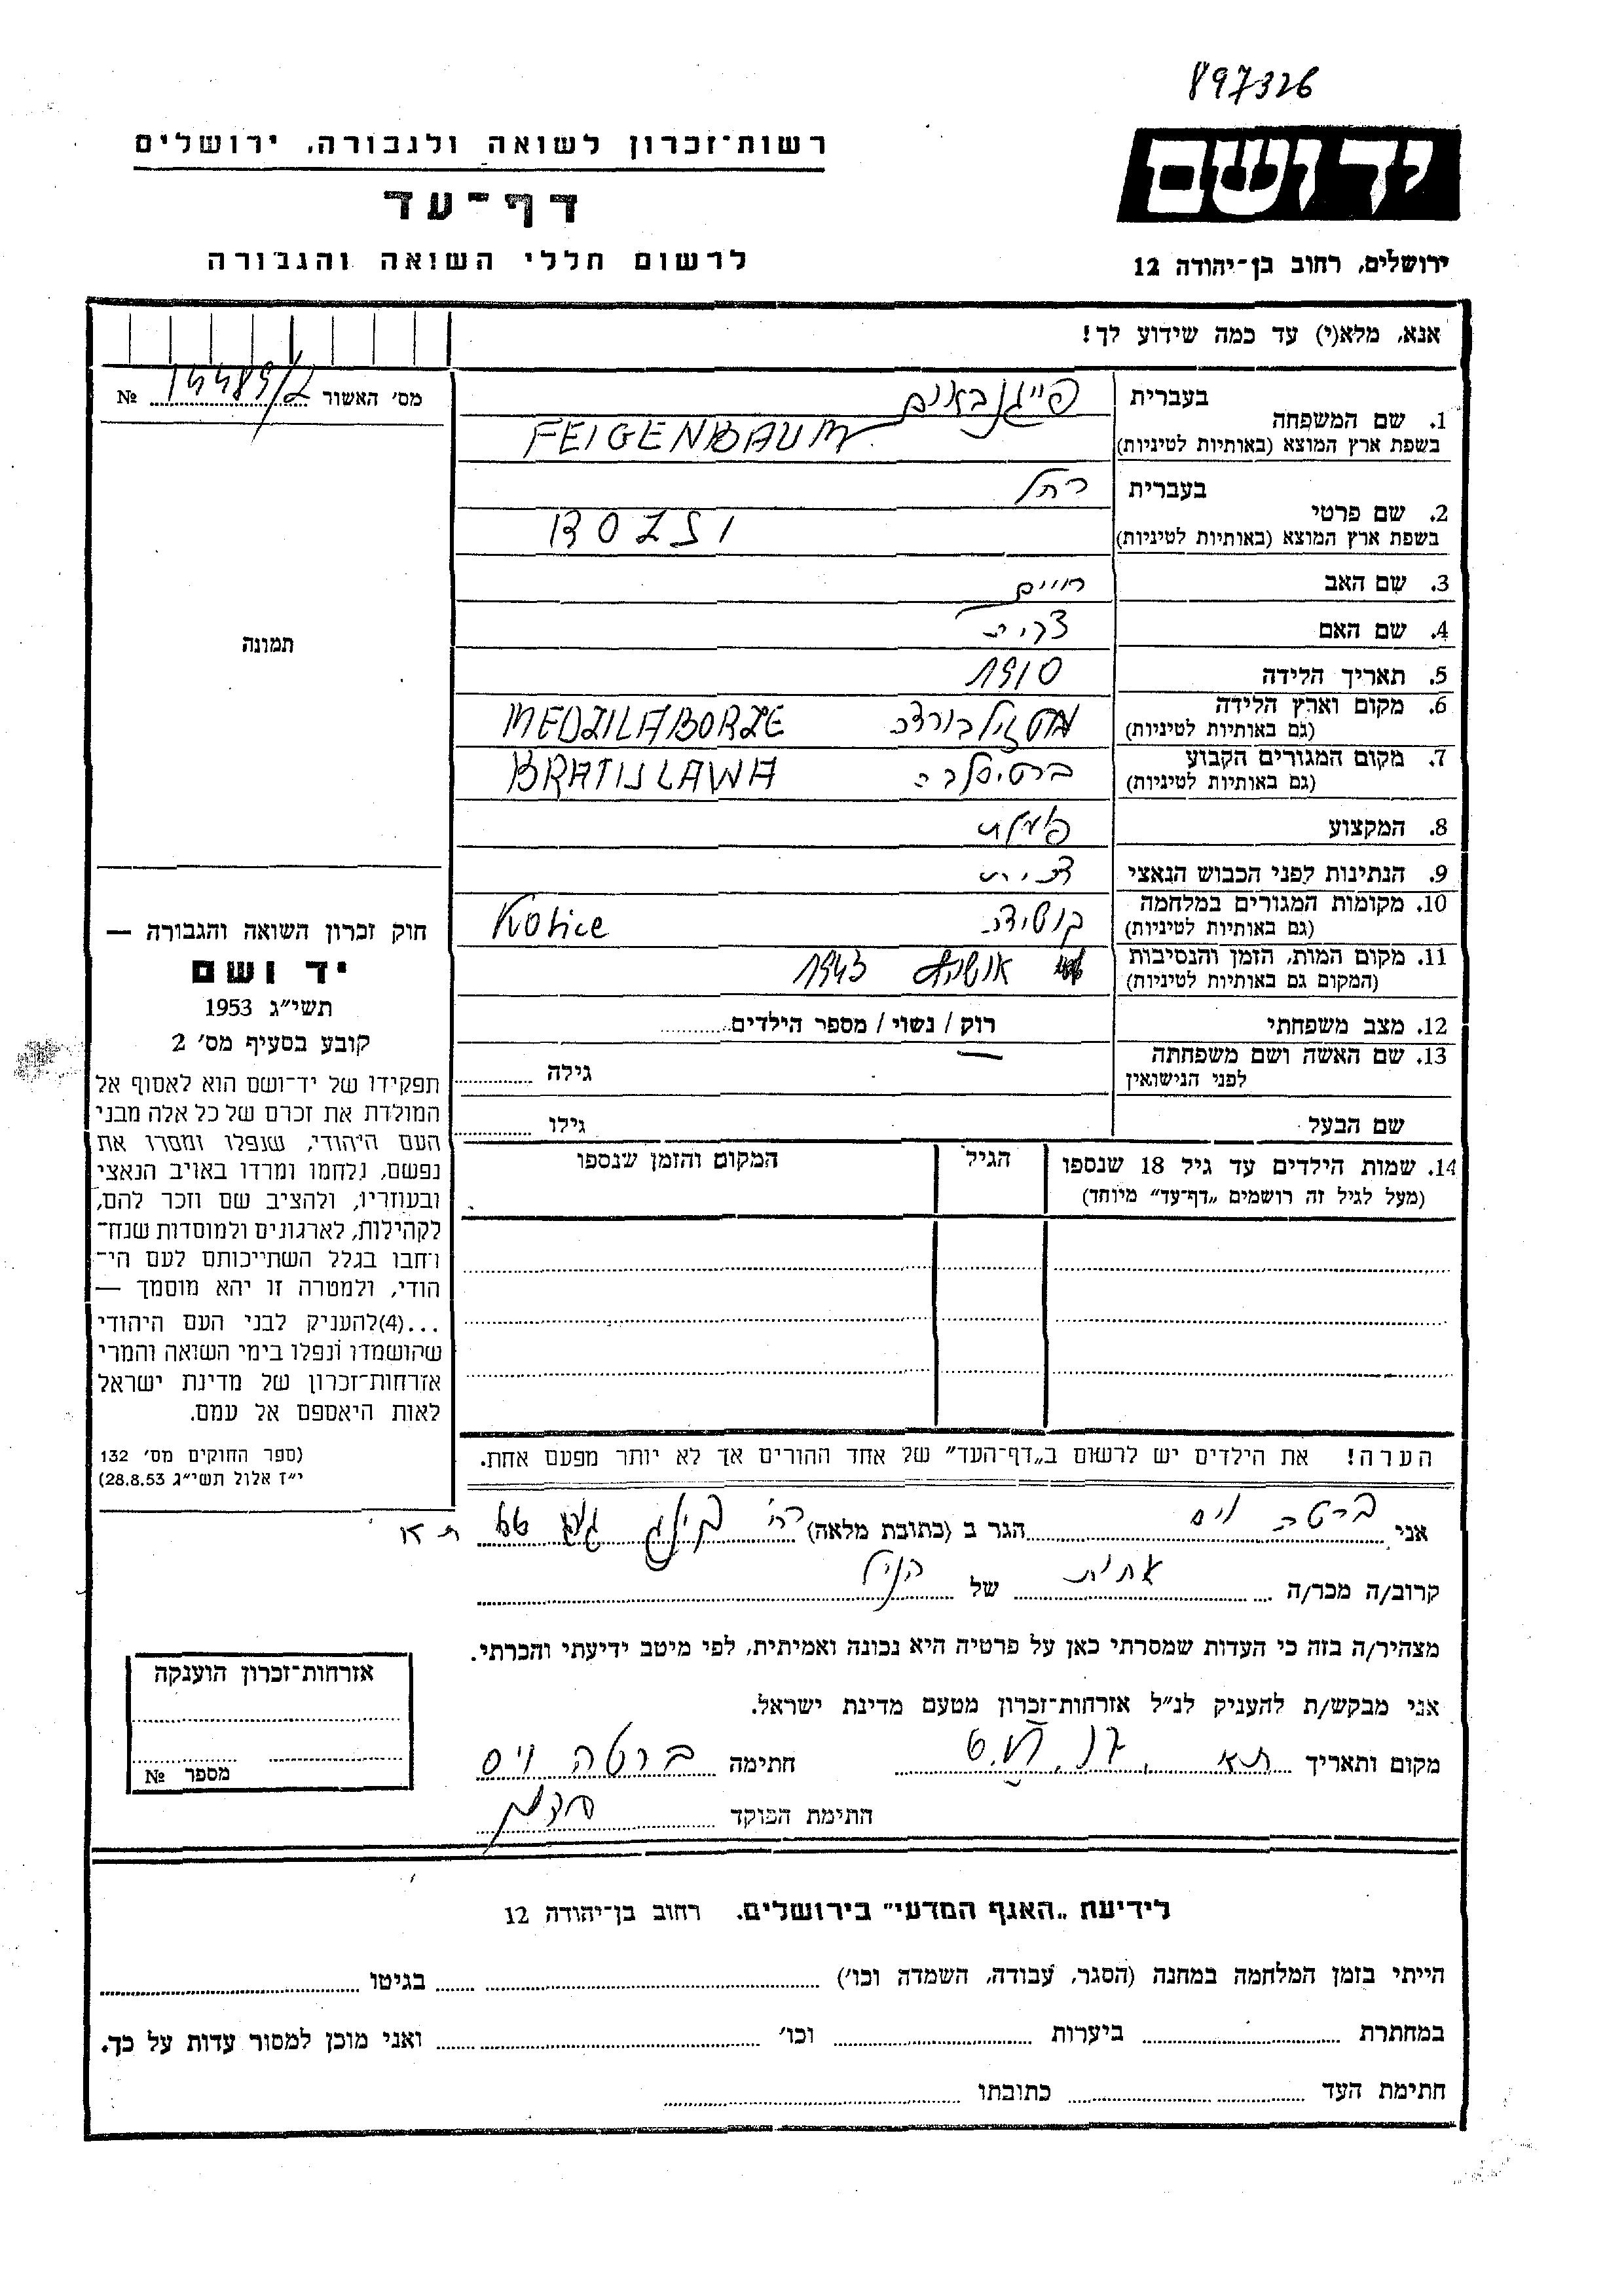 897326
יד ושם
ירושלים, רחוב בן-יהודה 12
רשות-זכרון לשואה ולגבורה, ירושלים
דף-עד
לרשום חללי השואה והגבורה
אנא, מלא(י) עד כמה שידוע לך!
מס' האשור № 14489/2
1. שם המשפחה בעברית פייגנבאום
בשפת ארץ המוצא (באותיות לטיניות) FEIGENBAUM
2. שם פרטי בעברית רחל
בשפת ארץ המוצא (באותיות לטיניות) BOZSI
3. שם האב חיים
4. שם האם
5. תאריך הלידה 1910
6. מקום וארץ הלידה
(גם באותיות לטיניות) MEDZILABORZE
7. מקום המגורים הקבוע ברטיסלבה
(גם באותיות לטיניות) BRATISLAWA
8. המקצוע
9. הנתינות לפני הכבוש הנאצי
10. מקומות המגורים במלחמה
(גם באותיות לטיניות) Kosice
11. מקום המות, הזמן והנסיבות אושויץ 1943
(המקום גם באותיות לטיניות)
12. מצב משפחתי רוק / נשוי / מספר הילדים
13. שם האשה ושם משפחתה
לפני הנישואין גילה
שם הבעל גילו
14. שמות הילדים עד גיל 18 שנספו הגיל המקום והזמן שנספו
(מעל לגיל זה רושמים „דף-עד" מיוחד)
הערה! את הילדים יש לרשום ב„דף-העד" של אחד ההורים אך לא יותר מפעם אחת.
תמונה
חוק זכרון השואה והגבורה —
יד ושם
תשי"ג 1953
קובע בסעיף מס' 2
תפקידו של יד-ושם הוא לאסוף אל
המולדת את זכרם של כל אלה מבני
העם היהודי, שנפלו ומסרו את
נפשם, נלחמו ומרדו באויב הנאצי
ובעוזריו, ולהציב שם וזכר להם,
לקהילות, לארגונים ולמוסדות שנח-
רבו בגלל השתייכותם לעם הי-
הודי, ולמטרה זו יהא מוסמך —
...(4)להעניק לבני העם היהודי
שהושמדו ונפלו בימי השואה והמרי
אזרחות-זכרון של מדינת ישראל
לאות היאספם אל עמם.
(ספר החוקים מס' 132
י"ז אלול תשי"ג 28.8.53)
אני ברטה ויס הגר ב (כתובת מלאה) רח' ת א
קרוב/ה מכר/ה אחות של הנ"ל
מצהיר/ה בזה כי העדות שמסרתי כאן על פרטיה היא נכונה ואמיתית, לפי מיטב ידיעתי והכרתי.
אני מבקש/ת להעניק לנ"ל אזרחות-זכרון מטעם מדינת ישראל.
מקום ותאריך ת א חתימה ברטה ויס
חתימת הפוקד
אזרחות-זכרון הוענקה
מספר №
לידיעת „האגף המדעי" בירושלים, רחוב בן-יהודה 12
הייתי בזמן המלחמה במחנה (הסגר, עבודה, השמדה וכו') בגיטו
במחתרת ביערות וכו' ואני מוכן למסור עדות על כך.
חתימת העד כתובתו